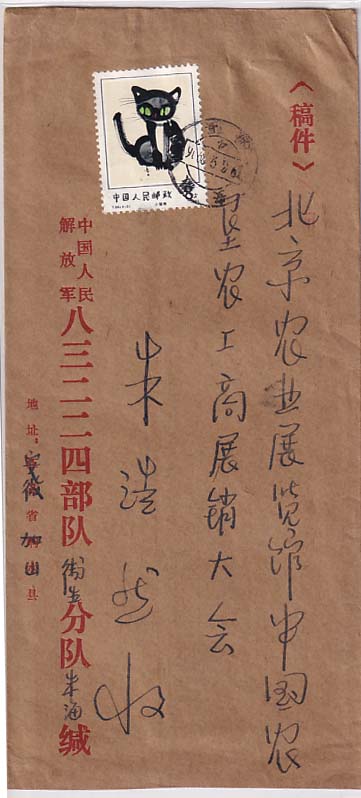 〈稿件〉
北京农业展览馆中国农
垦农工商展销大会
朱浩然 收
中国人民邮政
中国人民
解放军
八三二二四部队卫生分队朱海缄
地址:安徽省
县